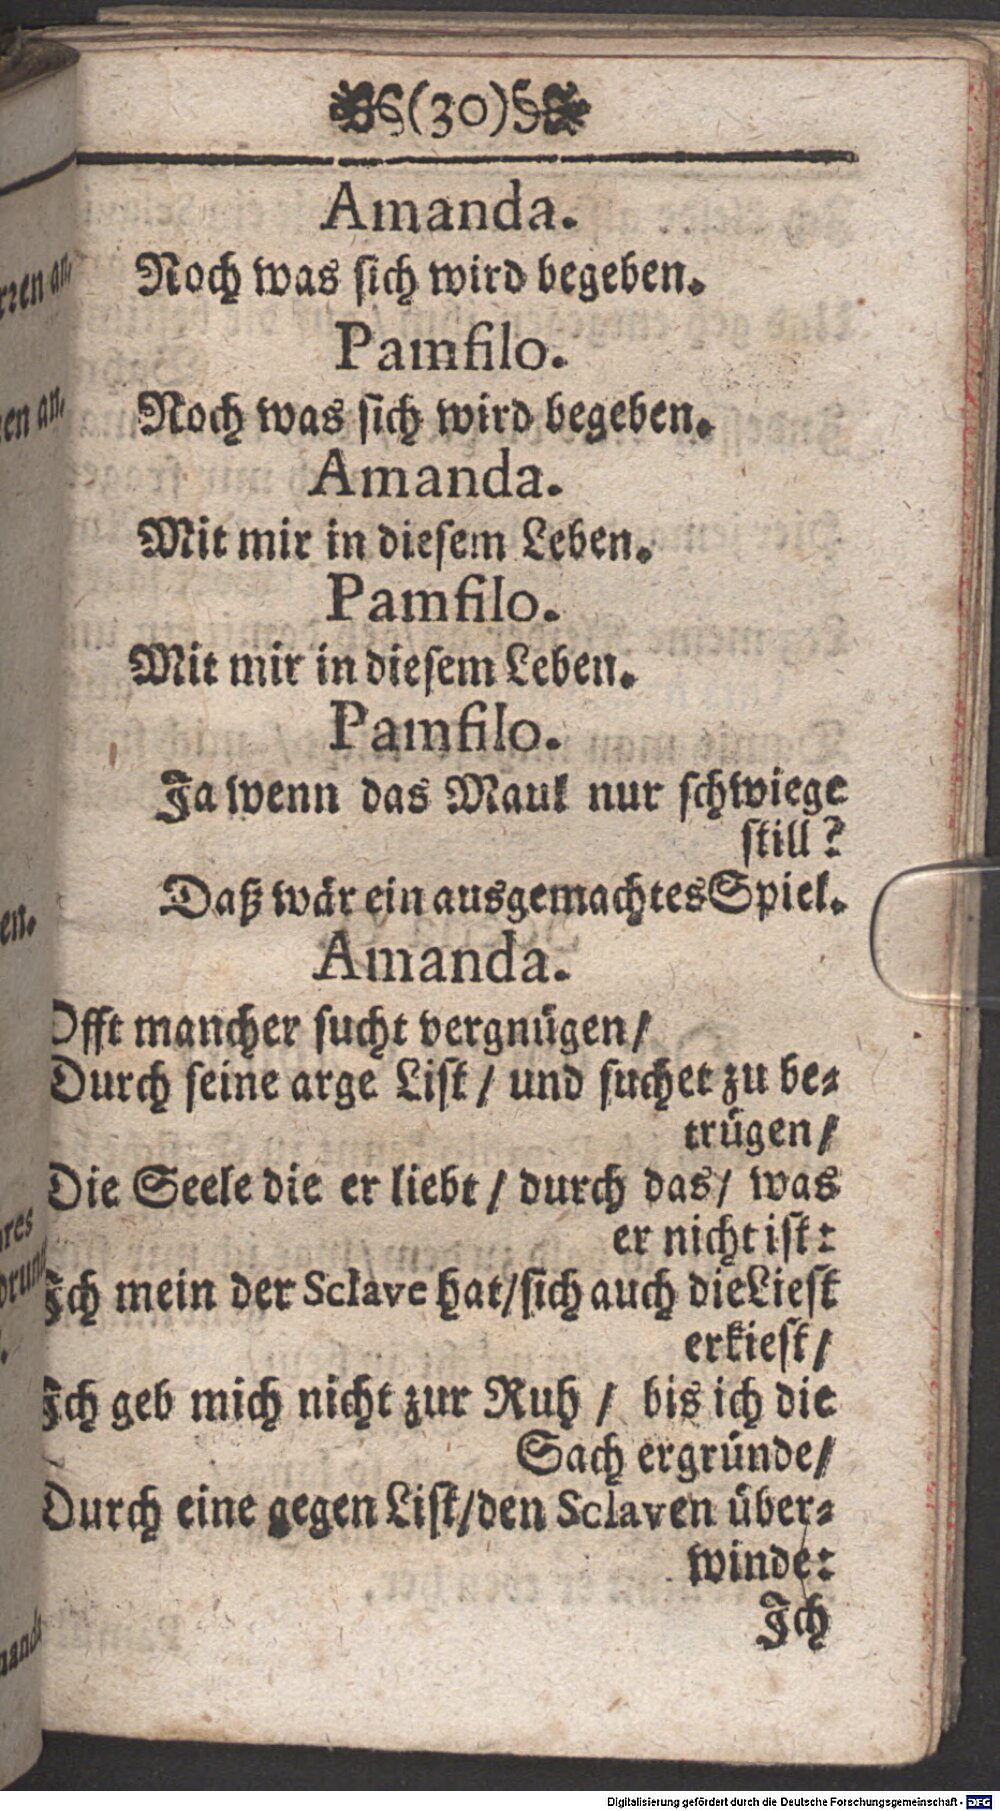 (30)
Amanda.
Noch was sich wird begeben.
Pamfilo.
Noch was sich wird begeben.
Amanda.
Mit mir in diesem Leben.
Pamfilo.
Mit mir in diesem Leben.
Pamfilo.
Ja wenn das Maul nur schwiege
still?
Daß wär ein ausgemachtes Spiel.
Amanda.
Offt mancher sucht vergnügen/
Durch seine arge List/ und suchet zu be-
trügen/
Die Seele die er liebt/ durch das/ was
er nicht ist:
Ich mein der Sclave hat/ sich auch die Liest
erkiest/
Ich geb mich nicht zur Ruh/ bis ich die
Sach ergründe/
Durch eine gegen List/ den Sclaven über-
winde:
Ich
Digitalisierung gefördert durch die Deutsche Forschungsgemeinschaft - DFG